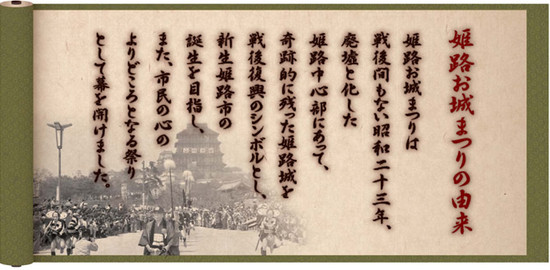 姫路お城まつりの由来
姫路お城まつりは
戦後間もない昭和二十三年、
廃墟と化した
姫路中心部にあって、
奇跡的に残った姫路城を
戦後復興のシンボルとし、
新生姫路市の
誕生を目指し、
また、市民の心の
よりどころとなる祭り
として幕を開けました。